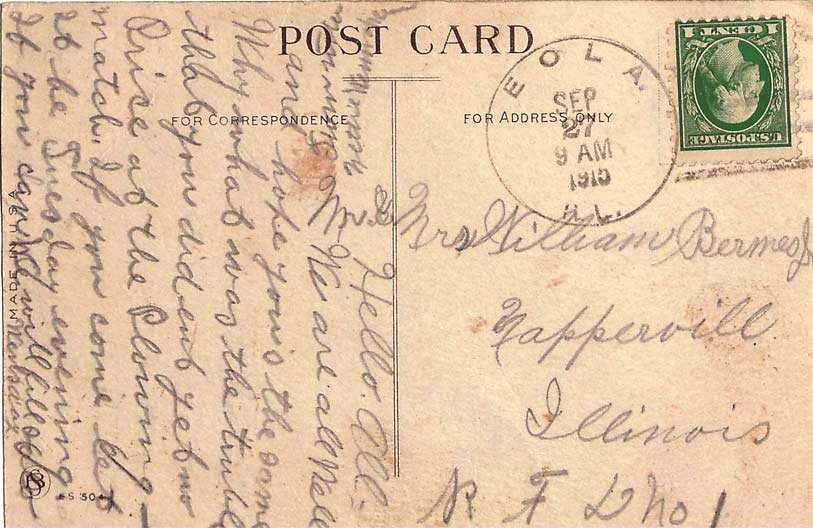 POST CARD
FOR CORRESPONDENCE
FOR ADDRESS ONLY
EOLA.
SEP
27
9 AM
1915
ILL.
1 CENT 1
U.S. POSTAGE
Mr & Mrs William Bermes Jr
Nappervill
Illinois
R F D No 1
Hello All:
We are all Well
and hope yours the same
Why what was the truble
that you did ent get no
Price at the Plowing –
match. If you come let
it be Tuesday evening
If you can
will
MADE IN U.S.A.
SS 504